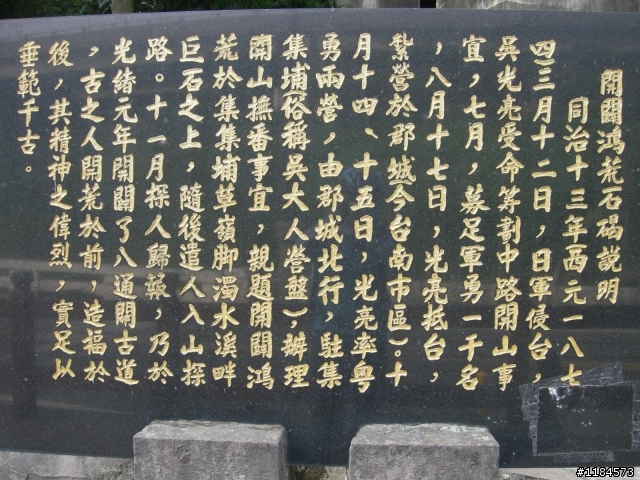 開闢鴻荒石碣說明
同治十三年西元一八七
四)三月十二日,日軍侵台,
吳光亮受命籌劃中路開山事
宜,七月,募足軍勇一千名
,八月十七日,光亮抵台,
紮營於郡城今台南市區)。十
月十四、十五日,光亮率粵
勇兩營,由郡城北行,駐集
集埔俗稱吳大人營盤),辦理
開山撫番事宜,親題開闢鴻
荒於集集埔草嶺脚濁水溪畔
巨石之上,隨後遣人入山探
路。十一月探人歸報,乃於
光緒元年開闢了八通關古道
,古之人開荒於前,造福於
後,其精神之偉烈,實足以
垂範千古。
#1184573